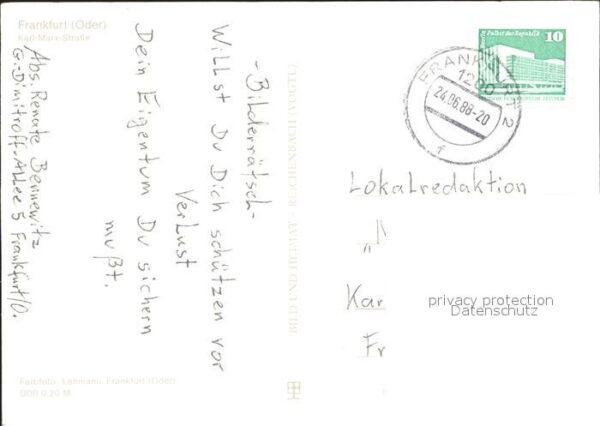 Frankfurt (Oder)
Karl-Marx-Straße
Abs. Renate Bennewitz
G.-Dimitroff-Allee 5 Frankfurt/O.
-Bilderrätsel-
Willst Du Dich schützen vor
Verlust
Dein Eigentum Du sichern
mußt.
BILD UND HEIMAT · REICHENBACH (VOGTL)
Palast der Republik
10
FRANKFURT 2
1200
24.06.88-20
f
Lokalredaktion
„
Kar
Fr
privacy protection
Datenschutz
Farbfoto: Lehmann, Frankfurt (Oder)
DDR 0,20 M